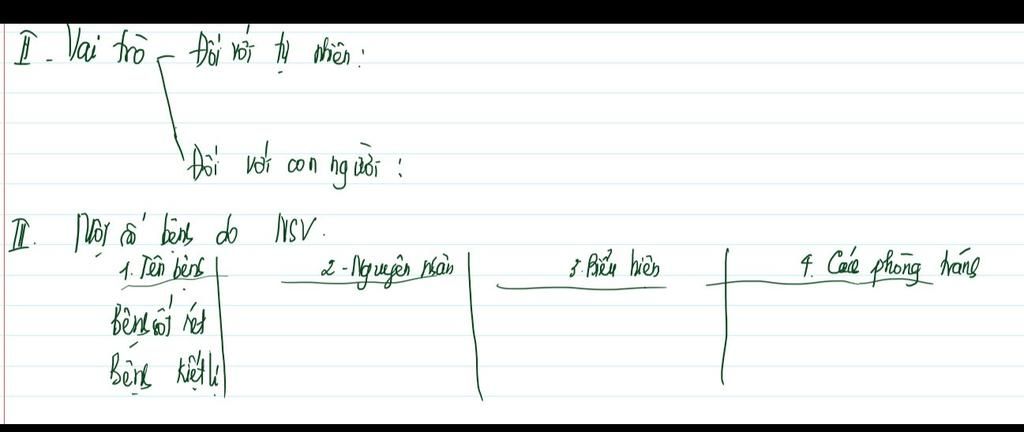 II. Vai trò - Đối với tự nhiên:
Đối với con người:
III. Một số bệnh do NSV.
1. Tên bệnh 2. Nguyên nhân 3. Biểu hiện 4. Cách phòng tránh
Bệnh sốt rét
Bệnh kiết lị